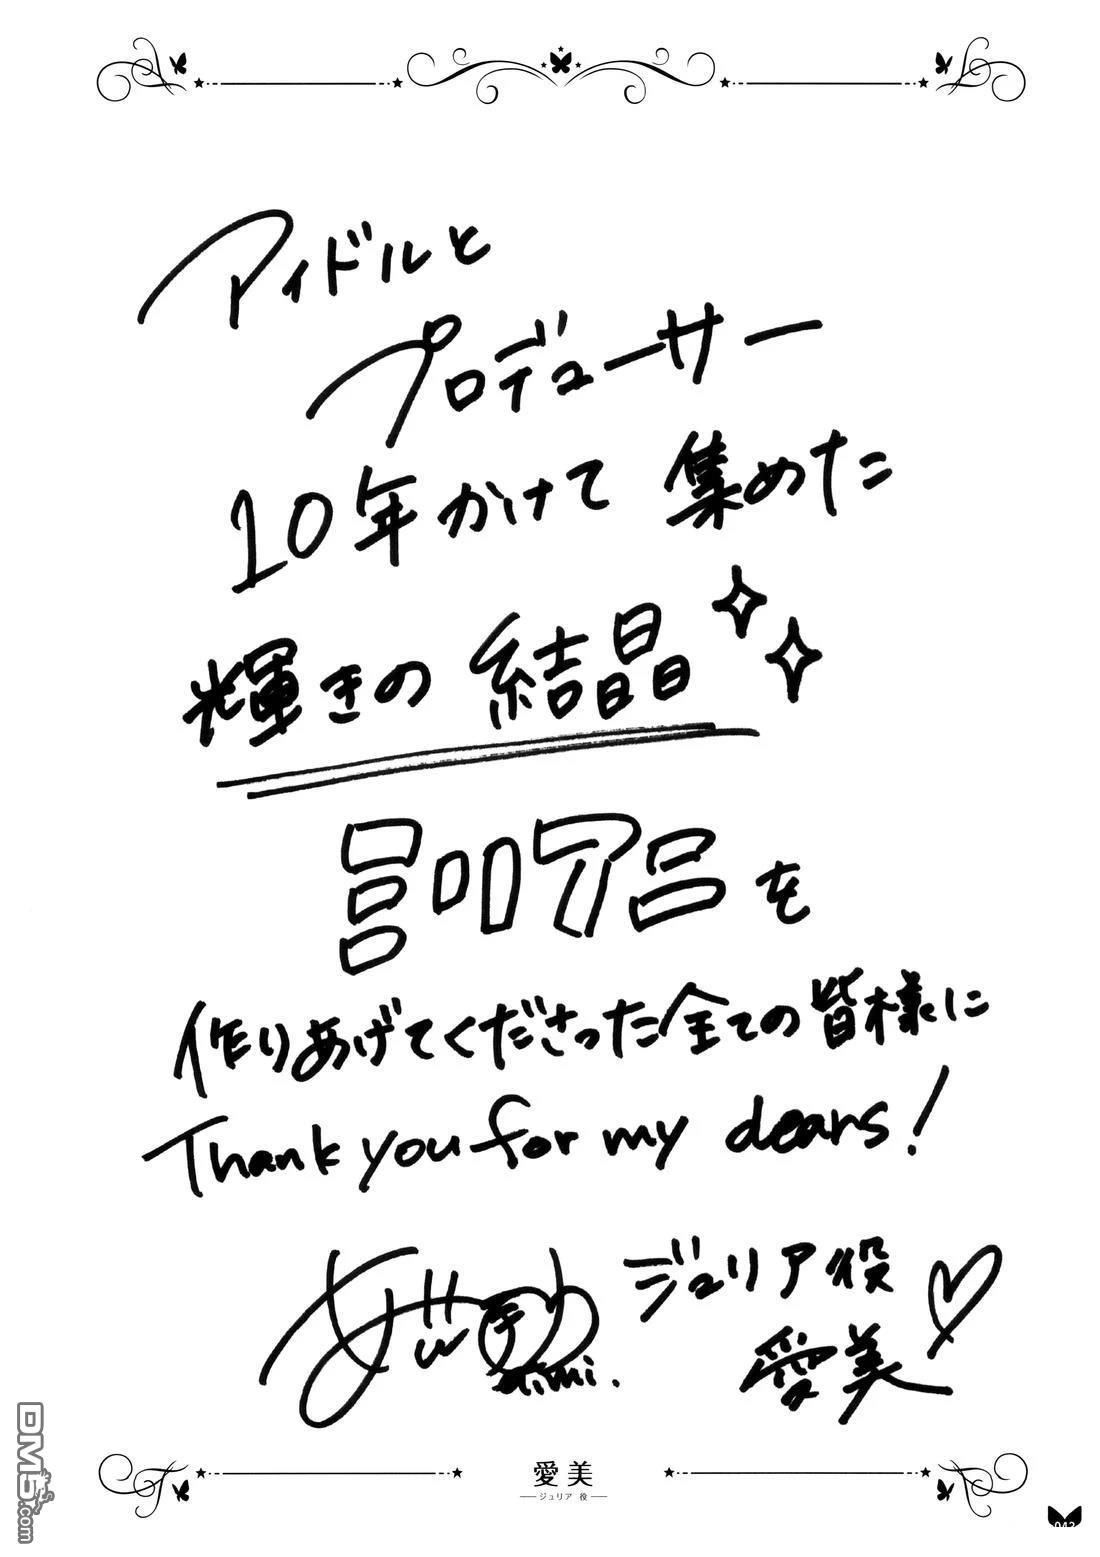 アイドルと
プロデューサー
10年かけて 集めた
輝きの 結晶
を
作りあげてくださった全ての皆様に
Thank you for my dears!
ジュリア役
愛美
aimi.
愛美
ジュリア 役
042
DM5.com